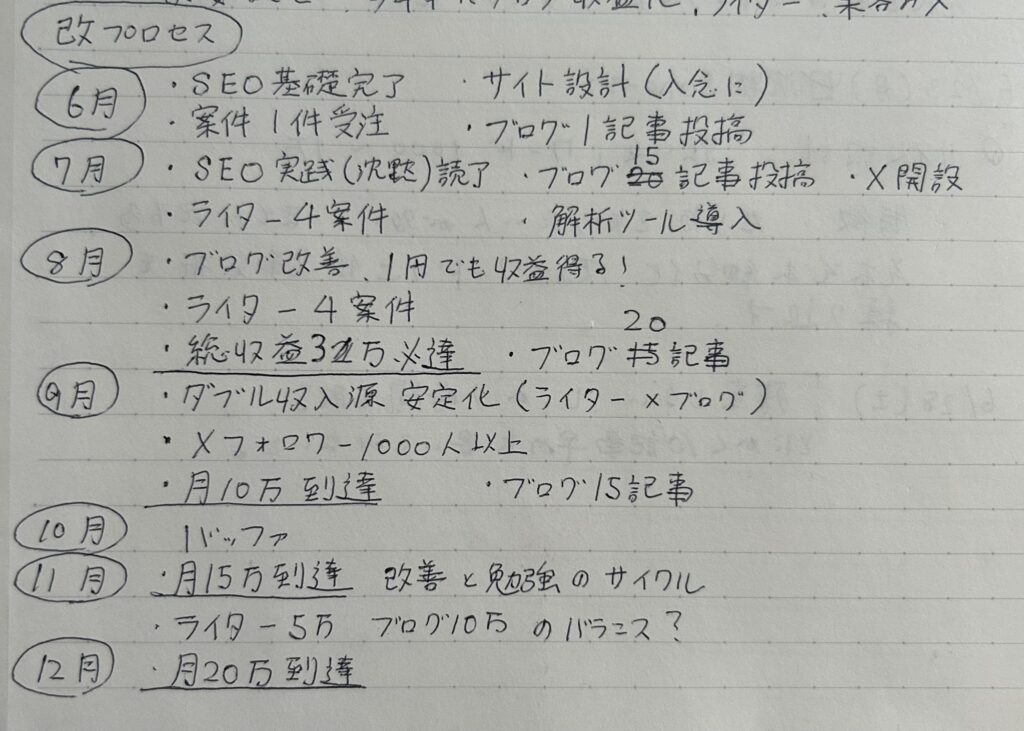 ブログ収益化、ライター、業務
改プロセス
6月 ・SEO基礎完了 ・サイト設計(入念に)
・案件1件受注 ・ブログ1記事投稿
7月 ・SEO実践(沈黙)読了 ・ブログ15記事投稿 ・X開設
・ライター4案件 ・解析ツール導入
8月 ・ブログ改善、1円でも収益得る!
・ライター4案件
・総収益3万必達 ・ブログ20記事
9月 ・ダブル収入源 安定化(ライター×ブログ)
・Xフォロワー1000人以上
・月10万到達 ・ブログ15記事
10月 バッファ
11月 ・月15万到達 改善と勉強のサイクル
・ライター5万 ブログ10万のバランス?
12月 ・月20万到達